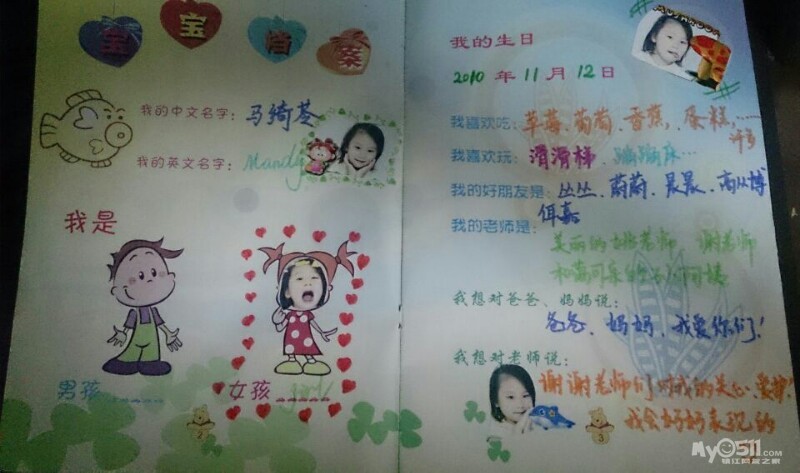 宝宝档案
我的中文名字：马绮苓
我的英文名字：Mandy
我是
男孩_____
女孩_____ girl
2
我的生日
2010 年 11 月 12 日
我喜欢吃：草莓、葡萄、香蕉、蛋糕……
许多
我喜欢玩：滑滑梯 蹦蹦床…
我的好朋友是：丛丛、蔚蔚、晨晨、高从博
佴嘉
我的老师是：
美丽的 老师、谢老师
和
我想对爸爸、妈妈说：
爸爸、妈妈，我爱你们！
我想对老师说：
谢谢老师们对我的关心、爱护！
我会好好表现的
3
My0511.com
镇江网友之家